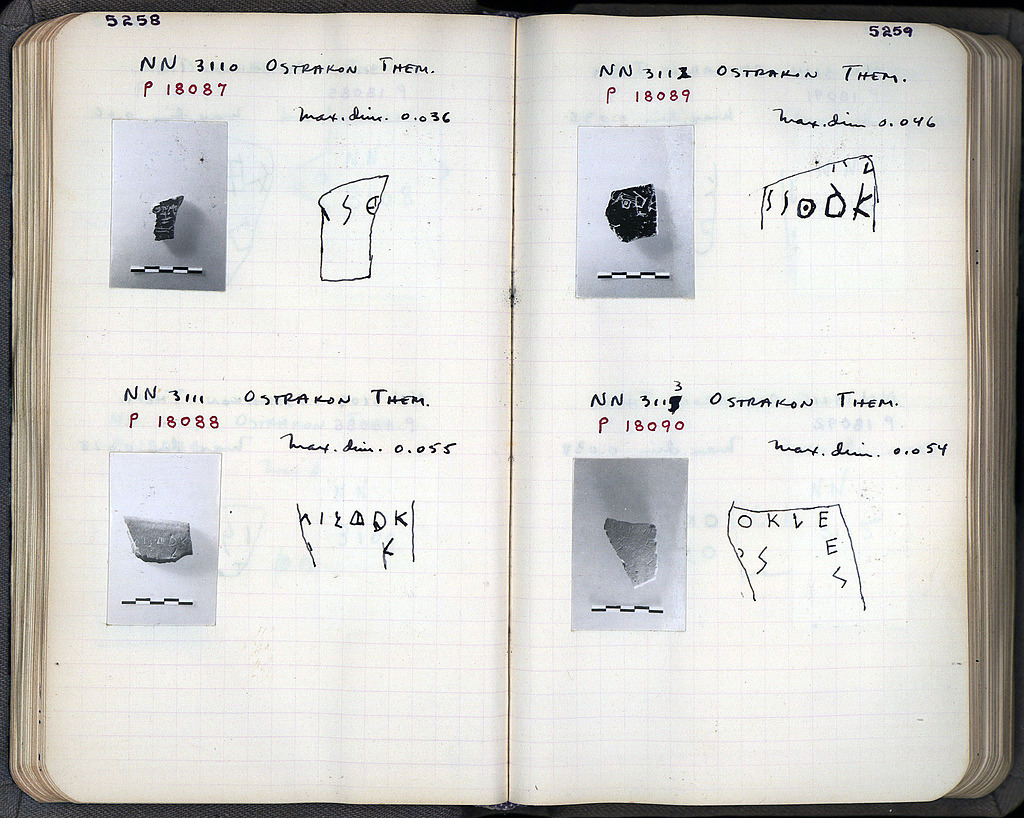 5258
NN 3110 OSTRAKON THEM.
P 18087
Max. dim. 0.036
NN 3111 OSTRAKON THEM.
P 18088
Max. dim. 0.055
K
5259
NN 3112 OSTRAKON THEM.
P 18089
Max. dim 0.046
NN 3113 OSTRAKON THEM.
P 18090
Max. dim. 0.054
O K L E
E